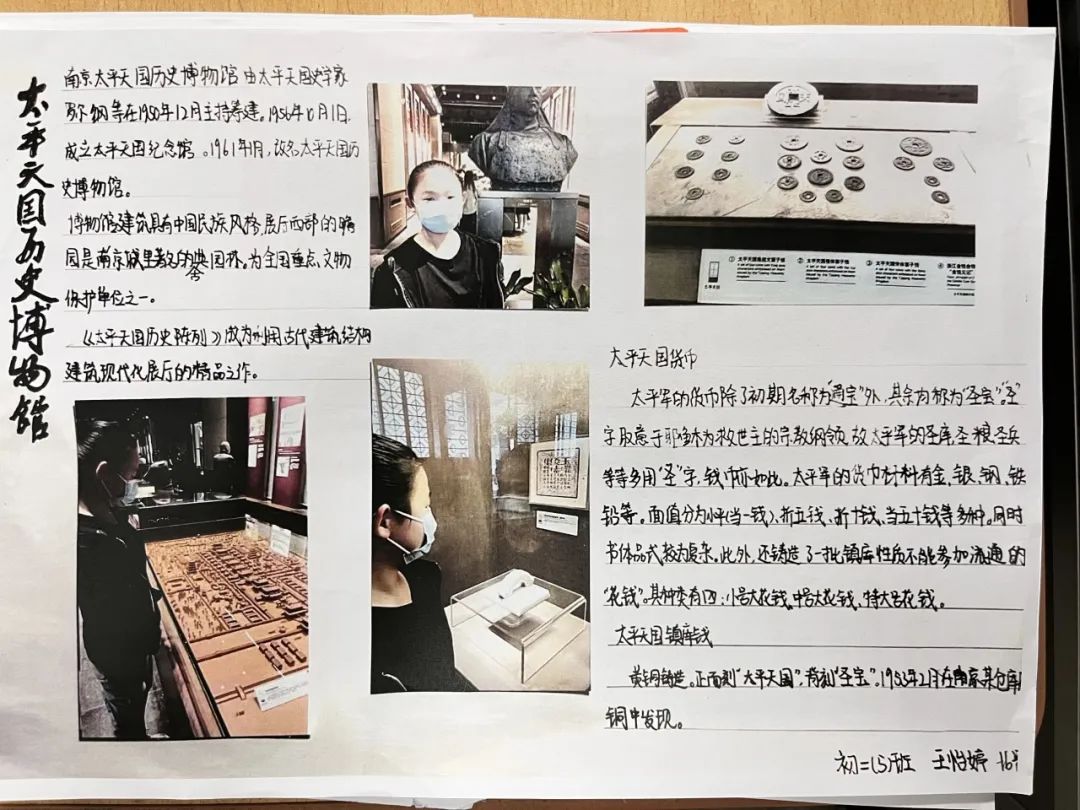 太平天国历史博物馆
南京太平天国历史博物馆由太平天国史学家
罗尔纲等在1950年12月主持筹建。1956年10月1日
成立太平天国纪念馆。1961年1月,改名太平天国历
史博物馆。
博物馆建筑具有中国民族风格,展厅西部的瞻
园是南京城里著名的典园林。为全国重点文物
保护单位之一。
《太平天国历史陈列》成为利用古代建筑结构
建筑现代化展厅的精品之作。
太平天国货币
太平军的货币除了初期名称为"通宝"外,其余均称为"圣宝"。"圣"
字取意于耶稣为救世主的宗教纲领,故太平军的圣库圣粮圣兵
等等多用"圣"字,钱币亦如此。太平军的货币材料有金、银、铜、铁
铅等。面值分为小平(当一钱)、折五钱、折十钱、当五十钱等多种。同时
书体品式较为复杂。此外,还铸造了一批镇库性质不能参加流通的
"花钱"。其种类有四:小号大花钱、中号大花钱、特大号花钱。
太平天国镇库钱
黄铜铸造。正面刻"太平天国",背刻"圣宝"。1953年2月在南京某仓库
铜中发现。
初二(5)班 王怡婷 16号